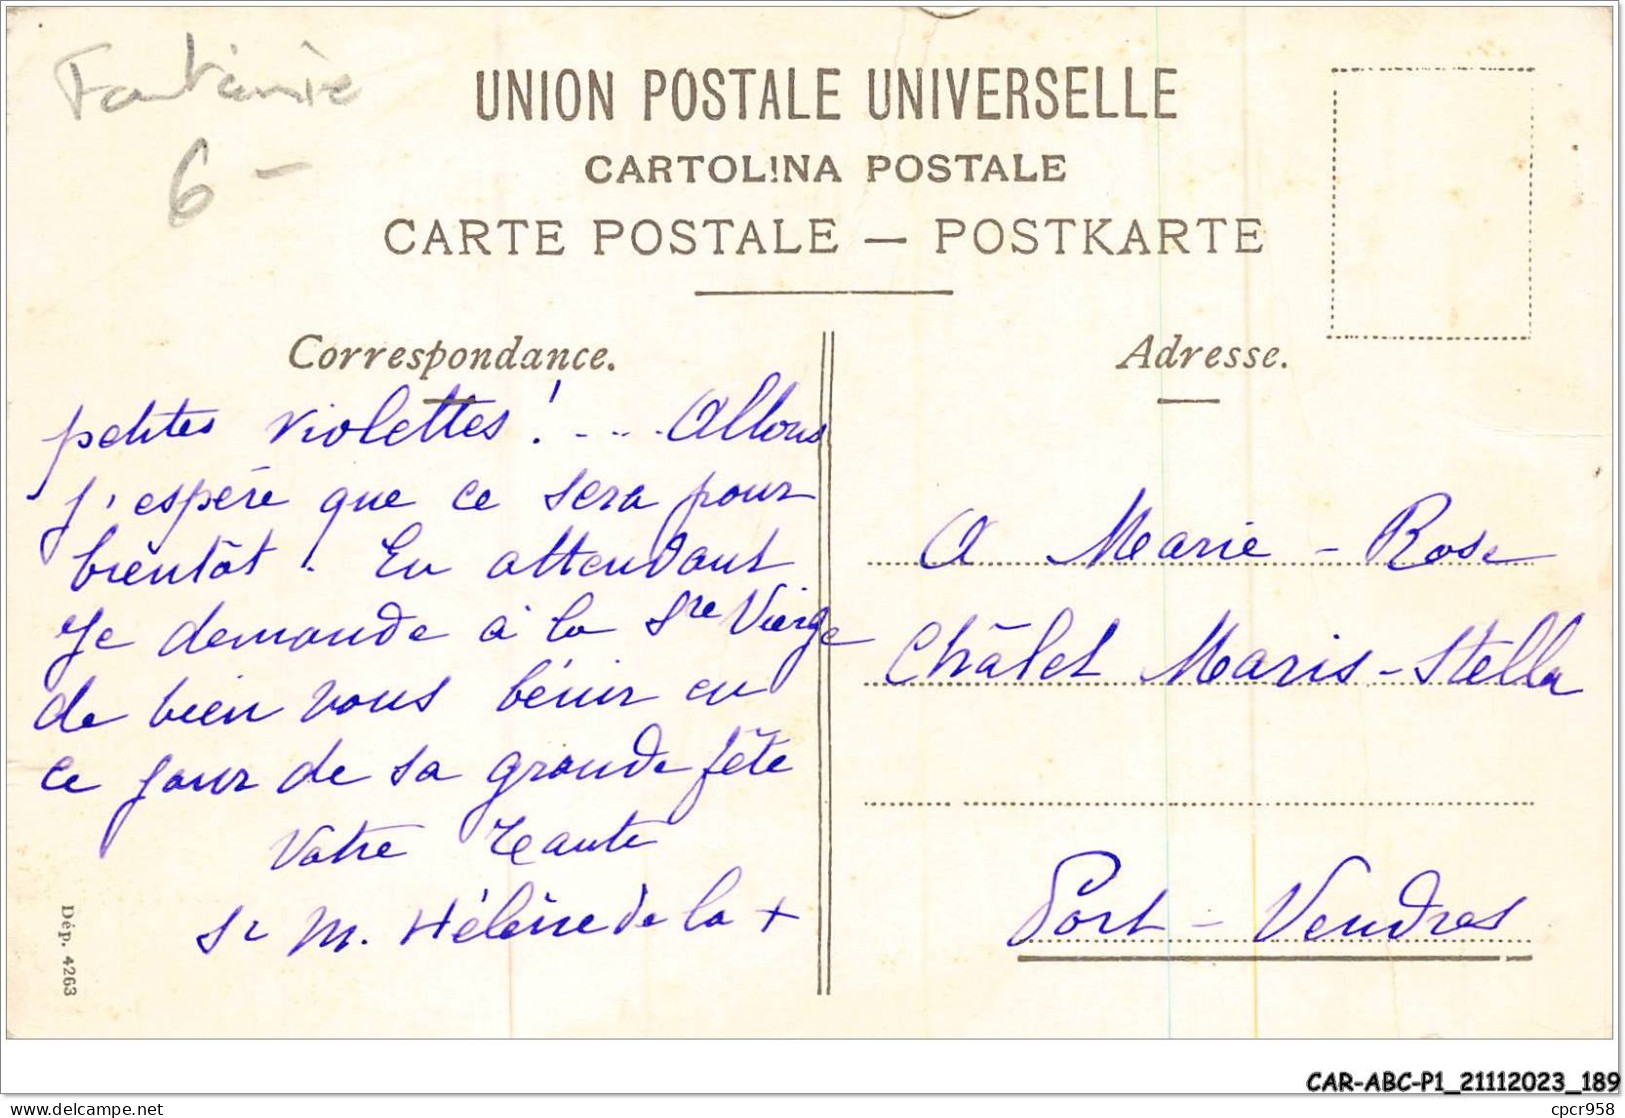 Fantaisie
6 -
UNION POSTALE UNIVERSELLE
CARTOLINA POSTALE
CARTE POSTALE — POSTKARTE
Correspondance.
petites violettes ! .... Allons
j'espère que ce sera pour
bientôt. En attendant
Je demande à la Ste Vierge
de bien vous bénir en
ce jour de sa grande fête
Votre Tante
Sr M. Hélène de la +
Dép. 4263
Adresse.
A Marie-Rose
Châlet Maris-Stella
Port-Vendres
CAR-ABC-P1_21112023_189
delcampe.net
cpcr958